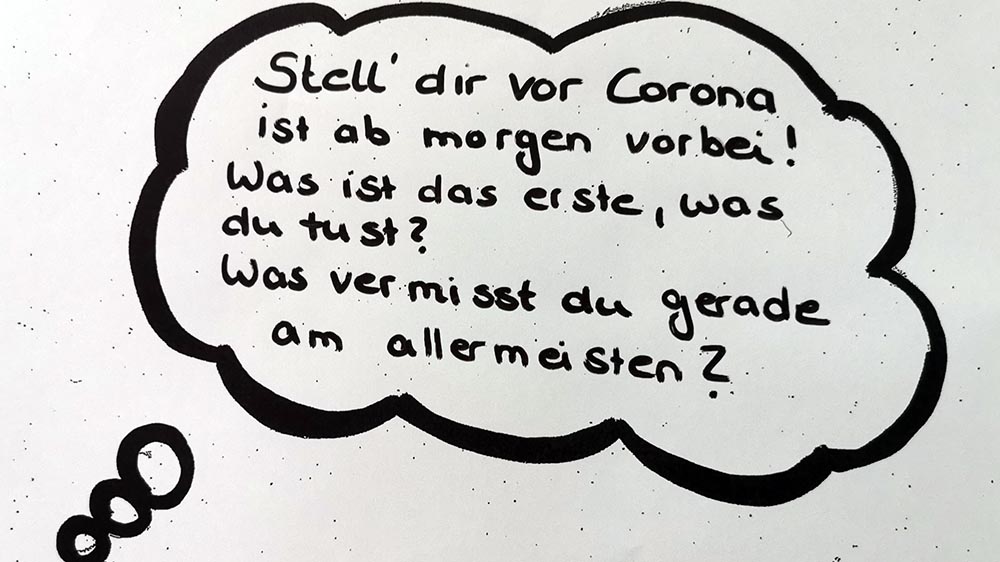 Stell' dir vor Corona
ist ab morgen vorbei!
Was ist das erste, was
du tust?
Was vermisst du gerade
am allermeisten?